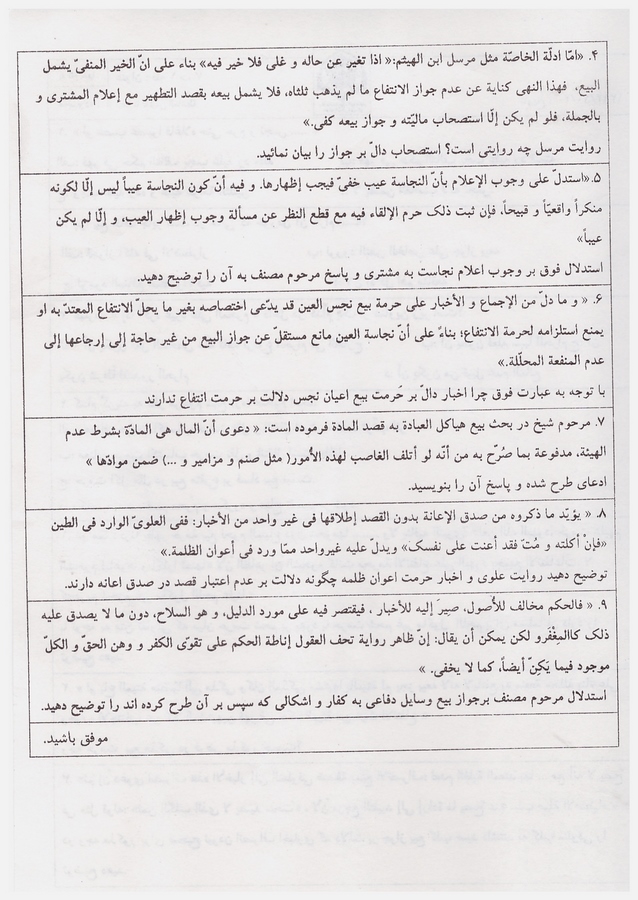 ۴. «امّا ادلّة الخاصّة مثل مرسل ابن الهیثم:« اذا تغیر عن حاله و غلی فلا خیر فیه» بناء علی انّ الخیر المنفیّ یشمل
البیع، فهذا النهی کنایة عن عدم جواز الانتفاع ما لم یذهب ثلثاه، فلا یشمل بیعه بقصد التطهیر مع إعلام المشتری و
بالجملة، فلو لم یکن إلّا استصحاب مالیّته و جواز بیعه کفی.»
روایت مرسل چه روایتی است؟ استصحاب دالّ بر جواز را بیان نمائید.
۵.«استدلّ علی وجوب الإعلام بأنّ النجاسة عیب خفیّ فیجب إظهارها. و فیه أنّ کون النجاسة عیباً لیس إلّا لکونه
منکراً واقعیّاً و قبیحاً، فإن ثبت ذلک حرم الإلقاء فیه مع قطع النظر عن مسألة وجوب إظهار العیب، و إلّا لم یکن
عیباً»
استدلال فوق بر وجوب اعلام نجاست به مشتری و پاسخ مرحوم مصنف به آن را توضیح دهید.
۶. « و ما دلّ من الإجماع و الأخبار علی حرمة بیع نجس العین قد یدّعی اختصاصه بغیر ما یحلّ الانتفاع المعتدّ به او
یمنع استلزامه لحرمة الانتفاع؛ بناءً علی أنّ نجاسة العین مانع مستقلّ عن جواز البیع من غیر حاجة إلی إرجاعها إلی
عدم المنفعة المحلّلة.»
با توجه به عبارت فوق چرا اخبار دالّ بر حَرمت بیع اعیان نجس دلالت بر حرمت انتفاع ندارند
۷. مرحوم شیخ در بحث بیع هیاکل العبادة به قصد المادة فرموده است: « دعوی أنّ المال هی المادّة بشرط عدم
الهیئة، مدفوعة بما صُرّح به من أنّه لو أتلف الغاصب لهذه الأُمور( مثل صنم و مزامیر و ...) ضمن موادّها »
ادعای طرح شده و پاسخ آن را بنویسید.
۸. « یؤیّد ما ذکروه من صدق الإعانة بدون القصد إطلاقها فی غیر واحد من الأخبار: ففی العلویّ الوارد فی الطین
«فإنْ أکلته و مُتّ فقد أعنت علی نفسک» ویدلّ علیه غیرواحد ممّا ورد فی أعوان الظلمة.»
توضیح دهید روایت علوی و اخبار حرمت اعوان ظلمه چگونه دلالت بر عدم اعتبار قصد در صدق اعانه دارند.
۹. « فالحکم مخالف للأُصول، صیرَ إلیه للأخبار ، فیقتصر فیه علی مورد الدلیل، و هو السلاح، دون ما لا یصدق علیه
ذلک کاالمِغْفرو لکن یمکن أن یقال: إنّ ظاهر روایة تحف العقول إناطة الحکم علی تقوّی الکفر و وهن الحقّ و الکلّ
موجود فیما یَکِنّ أیضاً، کما لا یخفی. »
استدلال مرحوم مصنف برجواز بیع وسایل دفاعی به کفار و اشکالی که سپس بر آن طرح کرده اند را توضیح دهید.
موفق باشید.